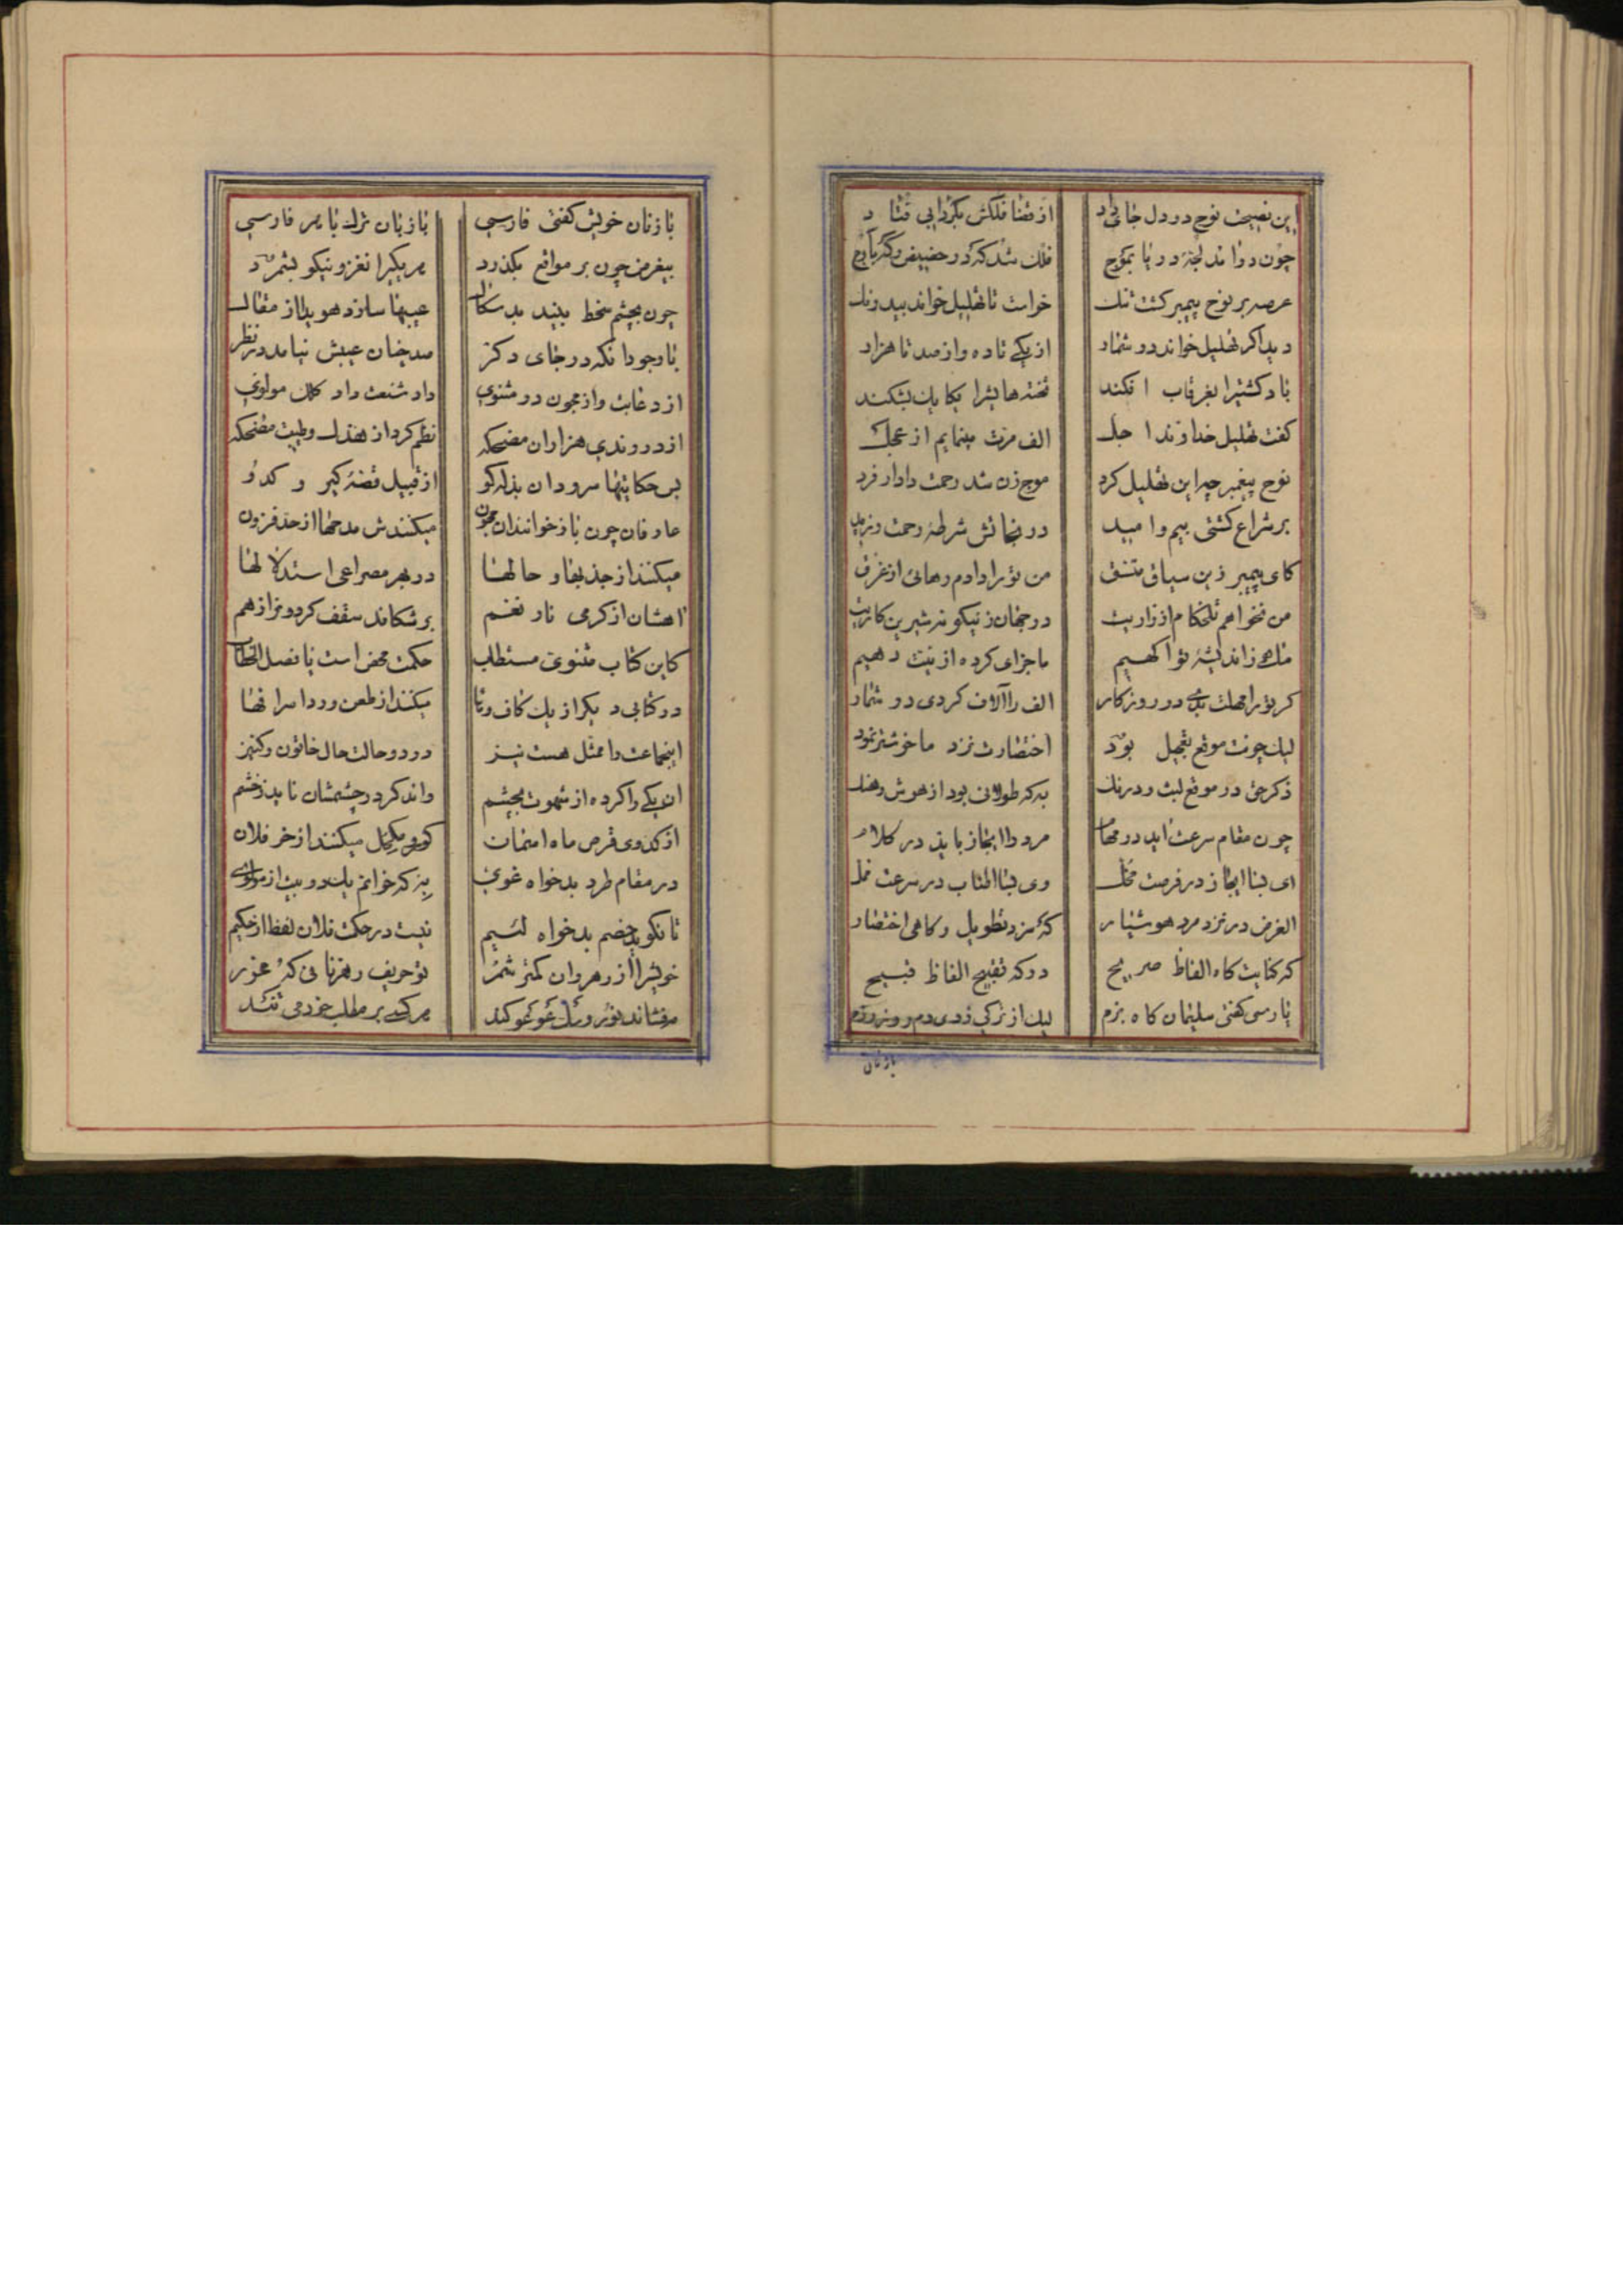 این نصیحت نوح در دل جای داد از قضا فلکش بگردابی فتاد
چون دوان شد لجهٔ دریا بموج فلک شد که در حضیض و گه باوج
عرصه بر نوح پیمبر کشت تنک خواست تا تهلیل خواند بیدرنک
دید اکر تهلیل خواند در شمار از یکی تا ده و از صد تا هزار
باد کشتیرا بغرقاب افکند تخته هایشرا یکایک بشکند
کفت تهلیل خداوند اجل الف مرت مینمایم از عجل
نوح پیغمبر چو این تهلیل کرد موج زن شد رحمت دادار فرد
بر شراع کشتی بیم و امید در نجاتش شرطهٔ رحمت وزید
کای پیمبر زین سیاق متسق من ترا دادم رهائی از غرق
من نخواهم تلخکام ازاریت در جهان ز نیکونه شیرین کاریت
ما هم از اندیشهٔ تو اکهیم ما جزای کرده از نیت دهیم
کر ترا مهلت بدی در روزکار الف را آلاف کردی در شمار
لیک چونت موقع تعجیل بود اختصارت نزد ما خوشتر نمود
ذکر حق در موقع لبث و درنک به که طولانی بود از هوش و هنک
چون مقام سرعت اید در مهام مرد را ایجاز باید در کلام
ای بسا ایجاز در فرصت مخل وی بسا اطناب در سرعت ممل
الغرض در نزد مرد هوشیار که سزد تطویل و کاهی اختصار
که کنایت کاه الفاظ صریح درکه تقبیح الفاظ قبیح
پارسی کفتی سلیمان کاه بزم لیک از ترکی زدی دم روز رزم
بازنان
بازنان خویش کفتی فارسی با زبان ترک با میر فارسی
بیغرض چون بر مواقع بکذرد هر یکیرا نغز و نیکو بشمرد
چون بچشم سخط بیند بد سکال عیبها سازد هویدا از مقال
با وجود انکه در جای دکر صد چنان عیبش نیامد در نظر
از دعابت واز مجون در مثنوی داد شنعت داد کلک مولوی
از در وندی هزاران مضحکه نظم کرد از هزل و طیبت مضحکه
بس حکایتها سرود ان بذله کو از قبیل قصهٔ کیر و کدو
عارفان چون باز خوانند ان مجون میکنندش مدحها از حد فزون
میکنند از جذبها و حالها در بهر مصراعی استدلالها
اهشان از کرمی نار نغم بر شکافد سقف کردونرا ز هم
کاین کتاب مثنوی مستطاب حکمت محض است یا فصل الخطاب
در کتابی دیکر از یک کاف و تا میکنند از طعن ورد اسرافها
اینجماعت را ممثل هست نیز در دو حالت حال خاتون و کنیز
ان یکی را کرده از شهوت بچشم واند کرد در چشمشان ناید ز خشم
از کدوی قرص ماه اسمان کوهر مکحل میکنند از خر فلان
در مقام طرد بدخواه غوی به که خوانم یک دو بیت از مولوی
تا نکوید خصم بدخواه لئیم نیست در حکمت فلان لفظ از حکیم
خویشرا از رهروان کمتر شمر تو حریف رهزنانی که مخور
مه فشاند نور و سک عوعو کند هر کسی بر مطلب خود می تند